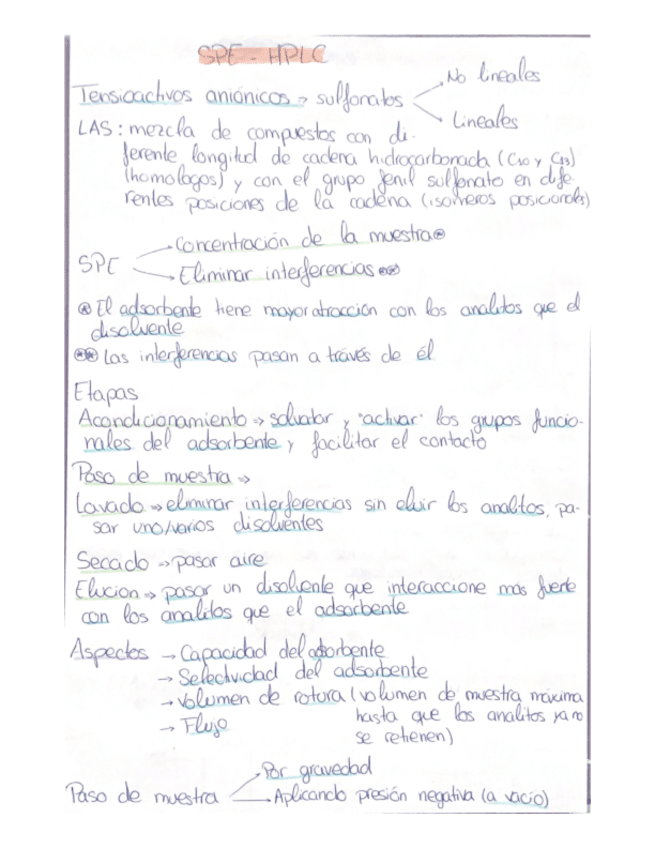 SPE - HPLC
Tensioactivos aniónicos → sulfonatos
No lineales
Lineales
LAS: mezcla de compuestos con di-
ferente longitud de cadena hidrocarbonada (C10 y C13)
(homólogos) y con el grupo fenil sulfonato en dife-
rentes posiciones de la cadena (isómeros posicionales)
SPE
Concentración de la muestra⊛
Eliminar interferencias⊛⊛
⊛ El adsorbente tiene mayor atracción con los analitos que el
disolvente
⊛⊛ Las interferencias pasan a través de él
Etapas
Acondicionamiento → solvatar y "activar" los grupos funcio-
nales del adsorbente y facilitar el contacto
Paso de muestra →
Lavado → eliminar interferencias sin eluir los analitos, pa-
sar uno/varios disolventes
Secado → pasar aire
Elución → pasar un disolvente que interaccione más fuerte
con los analitos que el adsorbente
Aspectos → Capacidad del adsorbente
→ Selectividad del adsorbente
→ Volumen de rotura (volumen de muestra máxima
hasta que los analitos ya no
se retienen)
→ Flujo
Paso de muestra
Por gravedad
Aplicando presión negativa (a vacío)